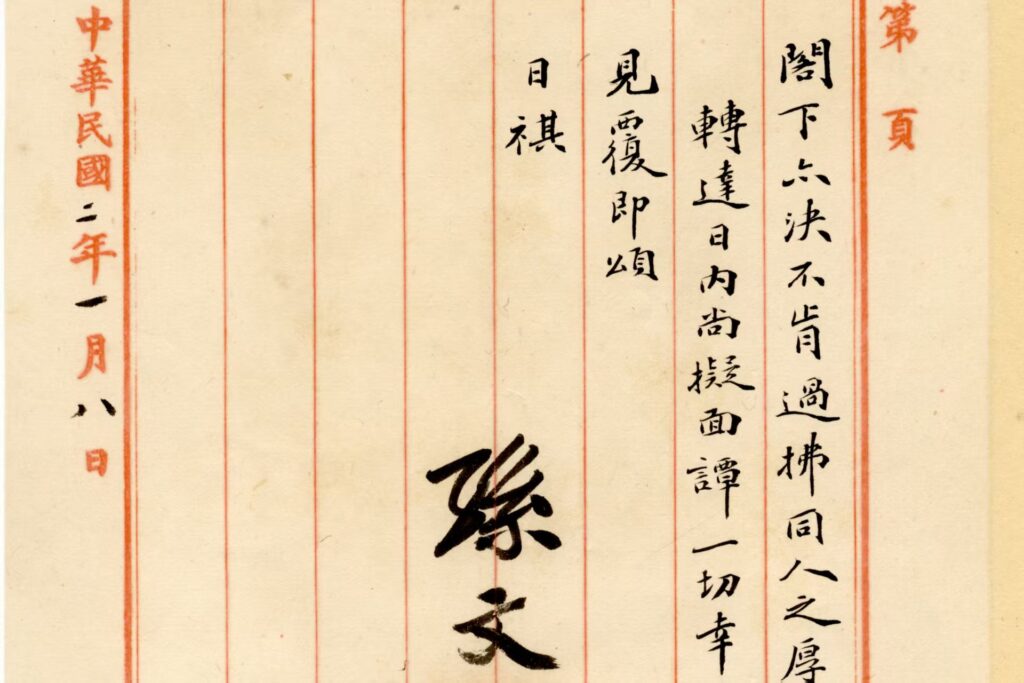 第 頁
閣下亦決不肯過拂同人之厚
轉達日内尚擬面譚一切幸
見覆即頌
日祺
孫文
中華民國二年一月八日